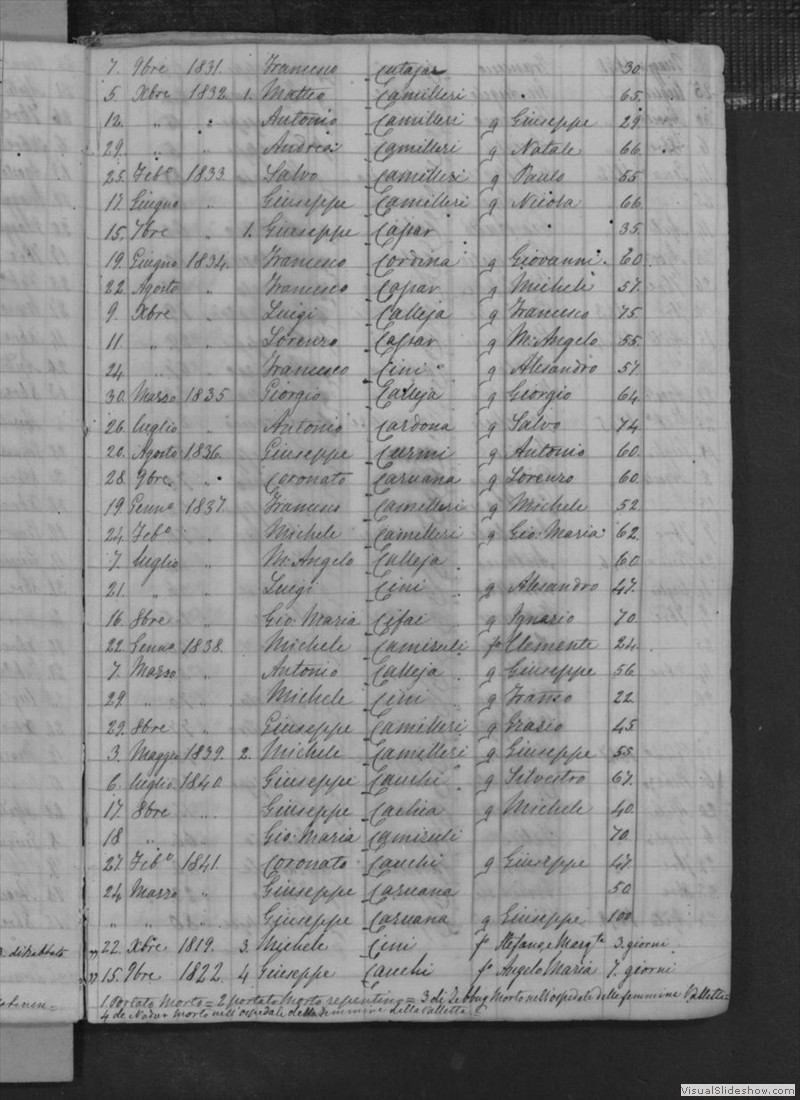 7. 9bre 1831. Francesco Cutajar 30.
5. Xbre 1832. 1. Matteo Camilleri 65.
12. „ „ Antonio Camilleri q Giuseppe 29
29. „ „ Andrea Camilleri q Natale 66.
25. Feb.º 1833. Salvo Camilleri q Paulo 55
17. Giugno „ Giuseppe Camilleri q Nicola 66
15. 7bre „ 1. Giuseppe Capar 35.
19. Giugno 1834. Francesco Cordina q Giovanni. 60.
22. Agosto „ Francesco Capar q Michele 57.
9. Xbre „ Luigi Calleja q Francesco 75
11. „ „ Lorenzo q M. Angelo 55.
24 „ „ Francesco Cini q Alesandro 57.
30. Marzo 1835 Giorgio Calleja q Giorgio 64
26. luglio „ Antonio Cardona q Salvo 74
20. Agosto 1836. Giuseppe Curmi q Antonio 60.
28. 9bre. „ Coronato Caruana q Lorenzo 60.
19. Genn.º 1837. Francesco Camilleri q Michele 52
24. Feb.º „ Michele Camilleri q Gio: Maria 62.
7. luglio „ M. Angelo Calleja 60
21. „ „ Luigi Cini q Alesandro 47.
16. 8bre „ Gio: Maria q Ignazio 70.
22. Genn.º 1838. Michele Camisuli f.º Clemente 24.
7. Marzo „ Antonio Calleja q Giuseppe 56
29. „ „ Michele Cini q 22.
29. 8bre „ Giuseppe Camilleri q Grazio 45
3. Maggio 1839. 2. Michele Camilleri q Giuseppe 55
6. luglio 1840. Giuseppe Cauchi q Silvestro 67.
17. 8bre „ Giuseppe q Michele 40.
18 „ „ Gio: Maria Camisuli 70.
27. Feb.º 1841. Coronato Cauchi q Giuseppe 47.
24. Marzo „ Giuseppe Caruana 50
„ „ „ Giuseppe Caruana q Giuseppe 100
„ 22. Xbre 1819. 3. Michele Cini f.º Stefano e Marg.ta 3. giorni
„ 15. 9bre 1822. 4 Giuseppe Cauchi f.º Angelo Maria 7. giorni
1. Portato morto = 2 portato morto repentino = 3 di Zebbug morto nell'ospedale delle femmine Valletta =
4 de Nadur morto nell'ospedale delle femmine della Valletta =
VisualSlideshow.com